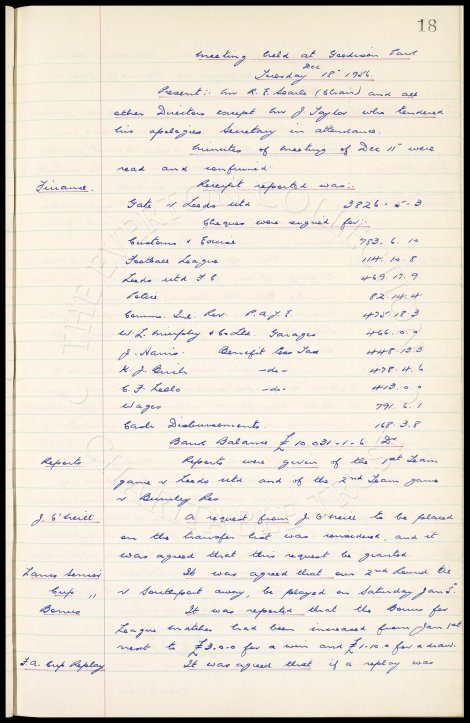 18
Meeting held at Goodison Park
Tuesday 18th Dec 1956.
Present:- Mr R. E. Searle (Chair) and all
other Directors except Mr J. Taylor who tendered
his apologies. Secretary in attendance.
Minutes of meeting of Dec 11th were
read and confirmed.
Finance. Receipt reported was:-
Gate v Leeds Utd 3826-5-3
Cheques were signed for:-
Customs & Excise 783.6.10
Football League 114.10.8
Leeds Utd F.C 469.17.9
Police 82.14.4
Comms. Inl. Rev. P A Y E 475.18.3
W. L. Murphy & Co Ltd. Garages 466.0.0
J. Harris. Benefit less Tax 448.13.3
K. J. Birch -do- 478.4.6
C. F. Lello -do- 413.0.0
Wages 791.6.1
Cash Disbursements. 168.3.8
Bank Balance £10,031-1-6 Dr
Reports Reports were given of the 1st Team
game v Leeds Utd and of the 2nd Team game
v Burnley Res
J. O'Neill. A request from J. O'Neill to be placed
on the transfer list was considered, and it
was agreed that this request be granted.
Lancs Senior It was agreed that our 2nd Round tie
Cup " v Southport away, be played on Saturday Jan 5th.
Bonus It was reported that the Bonus for
League matches had been increased from Jan 1st
next to £3.0.0 for a win and £1.10.0 for a draw.
F.A. Cup Replay It was agreed that if a replay was